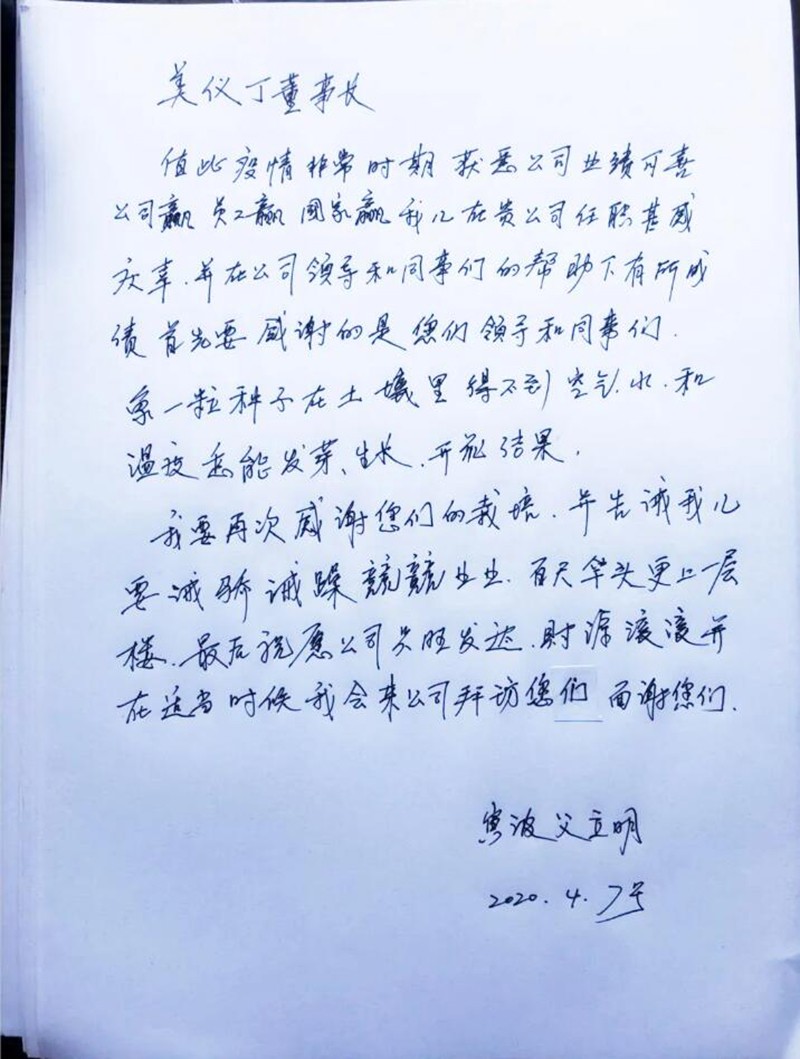 美仪丁董事长
值此疫情非常时期获悉公司业绩可喜
公司赢员工赢国家赢我儿在贵公司任职甚感
庆幸.并在公司领导和同事们的帮助下有所成
绩首先要感谢的是您们领导和同事们.
象一粒种子在土壤里得不到空气.水.和
温度怎能发芽、生长.开花结果.
我要再次感谢您们的栽培.并告诫我儿
要诫骄诫躁兢兢业业.百尺竿头更上一层
楼.最后祝愿公司兴旺发达.财源滚滚并
在适当时候我会来公司拜访您们面谢您们.
波父立明
2020.4.7号